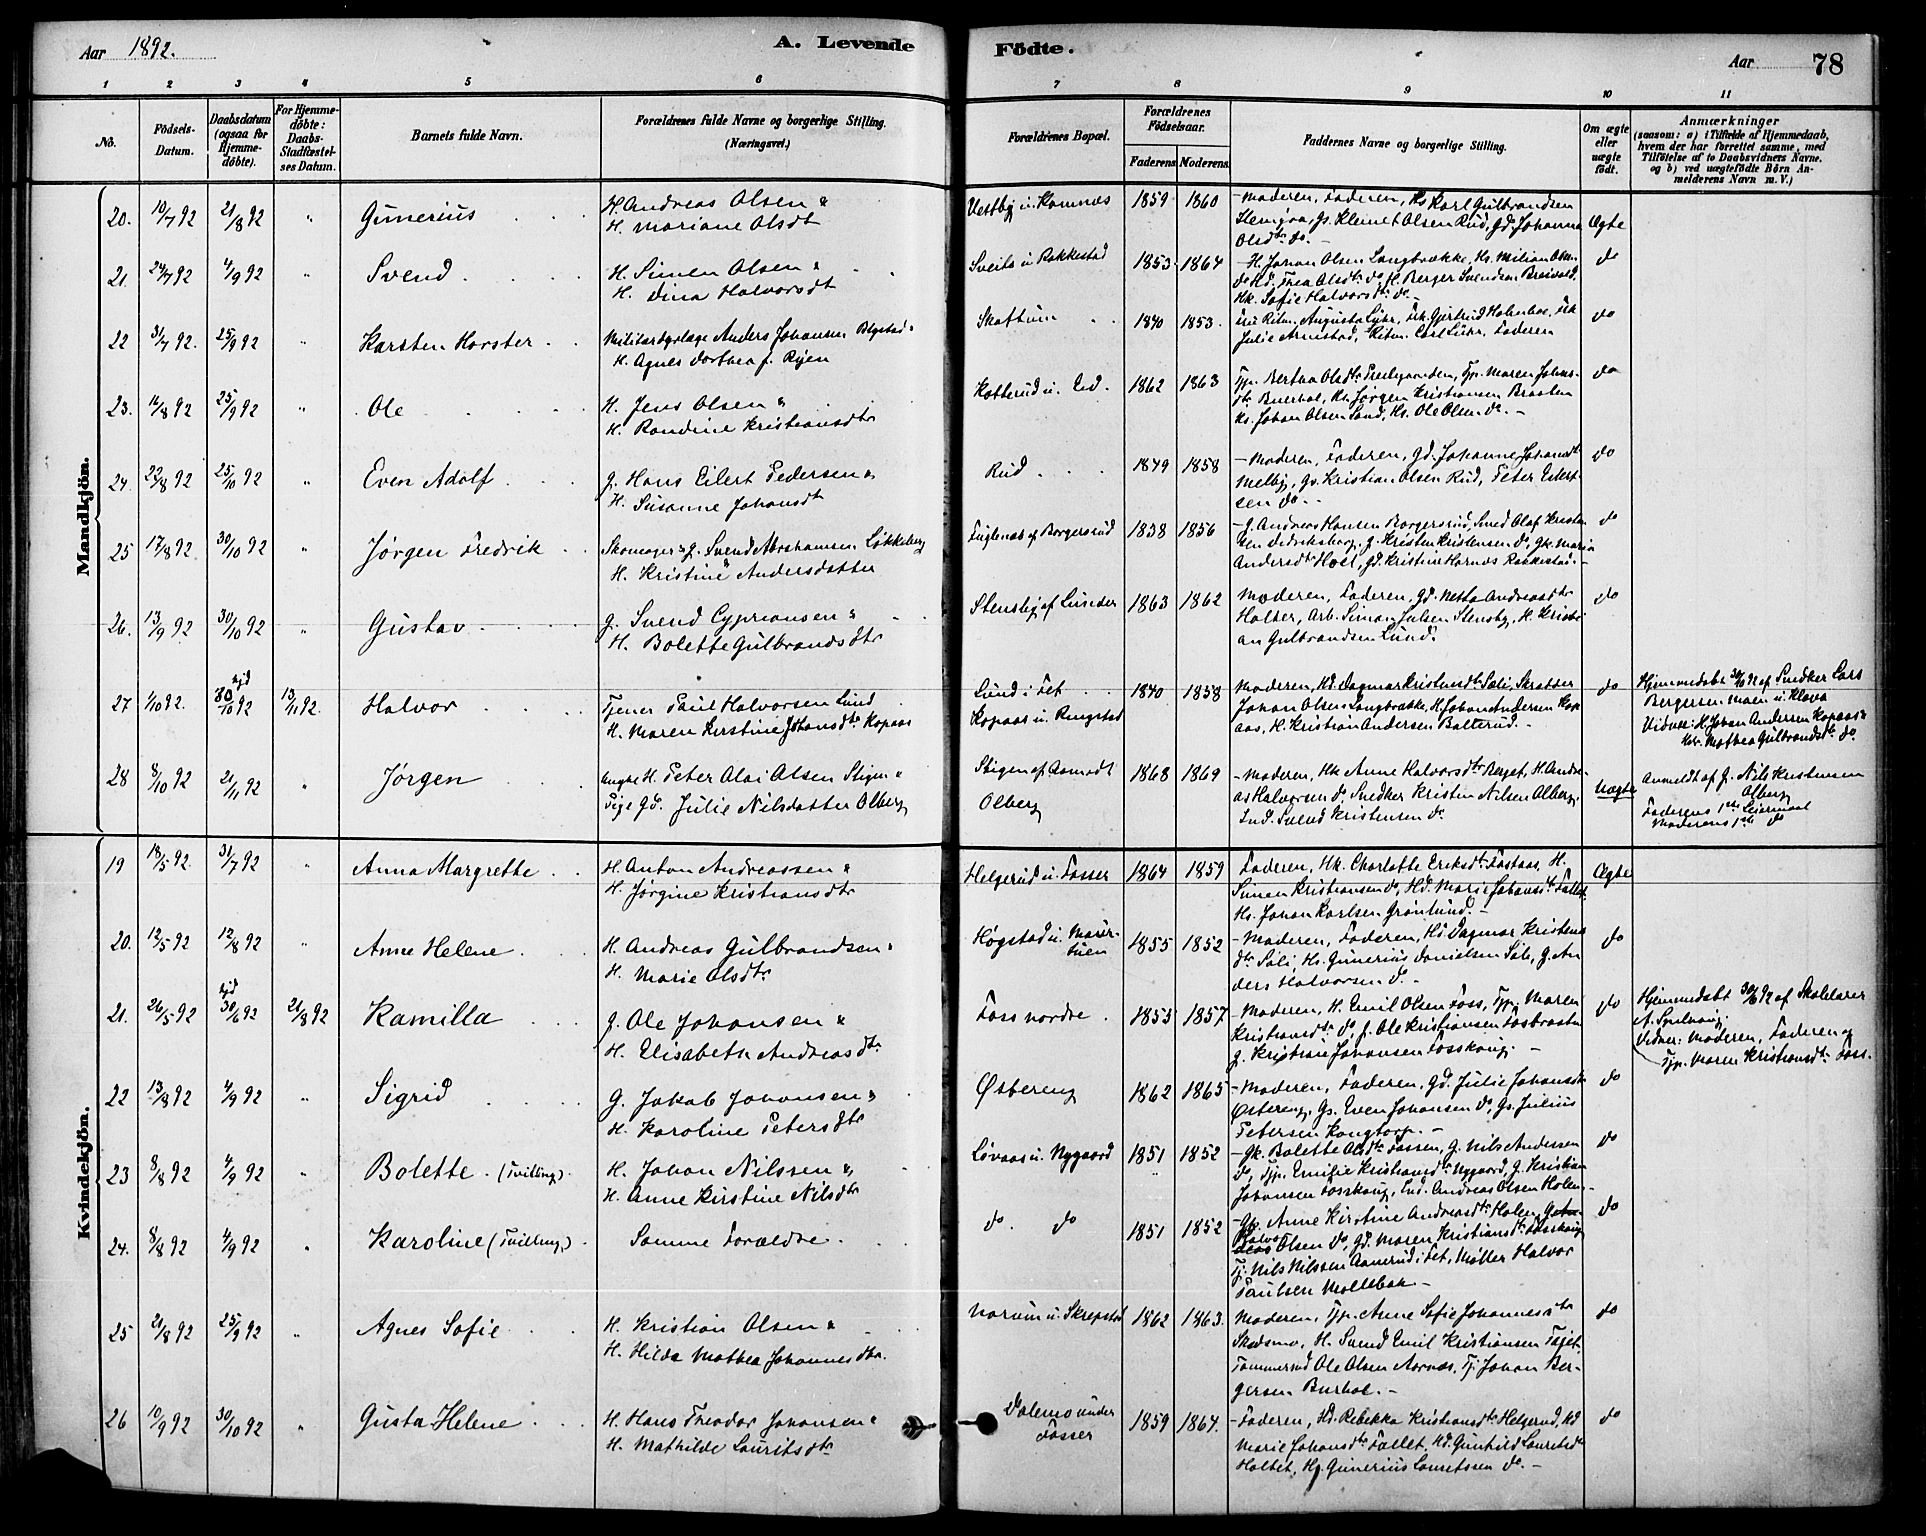 Aar 1892.
A. Levende Födte.
Aar 78
1 2 3 4 5 6 7 8 9 10 11
No.
Födsels-Datum.
Daabsdatum (ogsaa for Hjemme-döbte).
For Hjemme-döbte: Daabs-Stadfæstel-ses Datum.
Barnets fulde Navn.
Forældrenes fulde Navne og borgerlige Stilling. (Næringsvei.)
Forældrenes Bopæl.
Forældrenes Födselsaar.
Faderens. Moderens.
Faddernes Navne og borgerlige Stilling.
Om ægte eller uægte födt.
Anmærkninger
(saasom: a) i Tilfælde af Hjemmedaab,
hvem der har forrettet samme, med
Tilföielse af to Daabsvidners Navne.
og b) ved uægtefödte Börn An-
melderens Navn m. V.)
Mandkjön.
20. 10/7 92 21/8 92 " Gunerius
H. Andreas Olsen &
H. Mariane Olsdt
Vestby u. Kamnæs 1859 1860
Moderen, Faderen, Hs Karl Gulbrandsen
Gs. Klemet Olsen Rud, Gd. Johanna
Olsdtr do. -
Ægte
21. 24/7 92 4/9 92 " Svend
H. Simen Olsen &
H. Dina Halvorsdt
Sveits u Rakkestad 1853 1864
H. Johan Olsen Langbrække, Hs. Milian Olsen
do Hd. Thea Olsdtr do, H. Berger Svendsen Breivold,
Hk. Sofie Halvorsdtr do -
do
22 31/7 92. 25/9 92 " Karsten Horster
Militærdyrlæge Anders Johansen Bystad &
H. Agnes Dorthea f. Ryen
Skaftum 1840 1853.
Augusta Lühr, Frk. Gjertrud Holmboe, Frk
Julie Arnestad, Ritm. Carl Lühr, Faderen
do
23. 16/8 92 25/9 92 " Ole
H. Jens Olsen &
H. Randine Kristiansdtr
Katterud u. Eid. 1862 1863
Tjp. Berthe Olsdtr Prestegaarden, Tjp. Maren Johans-
dtr Buerhol, Hs. Jørgen Kristiansen Braaten
Hs. Johan Olsen Sand, Hs. Ole Olsen do. -
do
24. 22/8 92 25/10 92 " Even Adolf
G. Hans Eilert Pedersen &
H. Susanne Johansdt
Rud 1849 1858
Moderen, Faderen, Gd. Johanne Johansdt
Melby, Gs. Kristian Olsen Rud, Peter Eilert-
sen do. -
do
25 17/8 92. 30/10 92 " Jørgen Fredrik
Skomager & G. Svend Abrahamsen Løkkeberg
H. Kristine Andersdatter
Fuglenæs af Borgersrud 1838 1856
G. Andreas Hansen Borgersrud, Smed Olaf Kristen
sen Didriksborg, G. Kristen Kristensen do, Gk. Maria
Andersdtr Hoel, Gd. Kristine Hornæs Rakkestad. -
do
26. 13/9 92 30/10 92 " Gustav
G. Svend Cypriansen &
H. Bolette Gulbrandsdtr
Stensby af Lunder 1863 1862
Moderen, Faderen, Gd. Netta Andreasdtr
Holter, Arb. Simen Julsen Stensby, H. Kristi-
an Gulbrandsen Lund.
do
27 1/10 92. hjd 30/10 92 13/11 92. Halvor
Tjener Paul Halvorsen Lund
H. Maren Kirstine Johansdtr Kopaas
Lund i Fet
Kopaas u. Ringstad 1840 1858
Moderen, Hd. Dagmar Kristensdtr Sæli, Skrædder
Johan Olsen Langbrække, H. Johan Andersen Kop-
aas, H. Kristian Andersen Balterud. -
do
Hjemmedøbt af Snedker Lars
Bergersen Moen u. Kløva
Vidner: H. Johan Andersen Kopaas &
Hk. Mathea Gulbrandsdtr do.
28 8/10 92 21/11 92 " Jørgen
Ungk. H. Peter Olai Olsen Stigen &
Pige Gd. Julie Nilsdatter Olberg
Stigen af Aamodt
Olberg 1868 1869
Moderen, Hk. Anne Halvorsdtr Berget, H. Andre-
as Halvorsen do, Snedker Kristen Nilsen Olberg,
Ind. Svend Kristensen do
Uægte
Anmeldt af G. Nils Kristensen
Olberg
Faderens 1ste Leiermaal
Moderens 1ste do
Kvindekjön.
19 18/5 92. 31/7 92 " Anna Margrethe
H. Anton Andreassen &
H. Jørgine Kristiansdtr
Helgerud u. Fosser 1864 1859
Faderen, Hk. Charlotte Eriksdtr Fosaas, H.
Simen Kristiansen do, Hd. Marie Johansdtr Fallet,
Hs. Johan Karlsen Grønlund. -
Ægte
20. 12/5 92 12/8 92 " Anne Helene
H. Andreas Gulbrandsen &
H. Marie Olsdtr
Høgstad u. 1855 1852
Moderen, Faderen, Hd. Dagmar Kristens
dtr Sæli, Hs. Gunerius Danielsen Sæli, G. An
ders Halvorsen do. -
do
21. 26/5 92 hjd 30/6 92 21/8 92 Kamilla
G. Ole Johansen &
H. Elisabeth Andreasdtr
Foss nordre 1853 1857
Moderen, H. Emil Olsen Foss, Tjp. Maren
Kristiansdtr do, G. Ole Kristiansen Fosbraaten
G. Kristian Johansen Fosskaug. -
do
Hjemmedøbt 30/6 92 af Skolelærer
Vidner: Moderen, Faderen og
Tjp. Maren Kristiansdtr Foss.
22 13/8 92 4/9 92 " Sigrid
G. Jakob Johansen &
H. Karoline Petersdtr
Østereng 1862 1865
Moderen, Faderen, Gd. Julie Johansdtr
Østereng, Gs. Even Johansen do, Gs. Julius
Petersen Kongtorp. -
do
23 8/8 92 4/9 92 " Bolette (Tvilling)
H. Johan Nilssen &
H. Anne Kirstine Nilsdtr
Løvaas u. Nygaard 1851 1852
Gk. Bolette Olsdtr Fossen, G. Nils Andersen
do, Tjp. Emilie Kristiansdtr Nygaard, G. Kristian
Johansen Fosskaug, Ind. Andreas Olsen Holen
do
24. 8/8 92 4/9 92 " Karoline (Tvilling)
Samme Forældre.
do. do 1851 1852
Gk. Anne Kirstine Andreasdtr Holen,
Olsen do, Gd. Maren Kristiansdtr Fosskaug
Tj. Nils Nilssen Aamrud i Fet, Møller Halvor
Paulsen Moltebak. -
do
25 21/8 92 25/9 92 " Agnes Sofie
H. Kristian Olsen &
H. Hilda Mathea Johannesdtr.
Norum u. Skrepstad 1862 1863.
Moderen, Tjp. Anne Sofie Johannesdtr
Skedsmo, H. Svend Emil Kristiansen Tajet,
Tømmermd Ole Olsen Aarnæs, Tj. Johan Ber-
gersen Burhol. -
do
26 10/9 92 30/10 92 " Gusta Helene
H. Hans Theodor Johansen &
H. Mathilde Lauritsdtr
Dalemo under
Fosser 1859 1864.
Faderen, Hd. Rebekka Kristiansdtr Helgerud, Hd
Marie Johansdtr Fallet, Hd. Gunhild Lauritsdtr
Holtet, Hg. Gunerius Lauritssen do. -
do